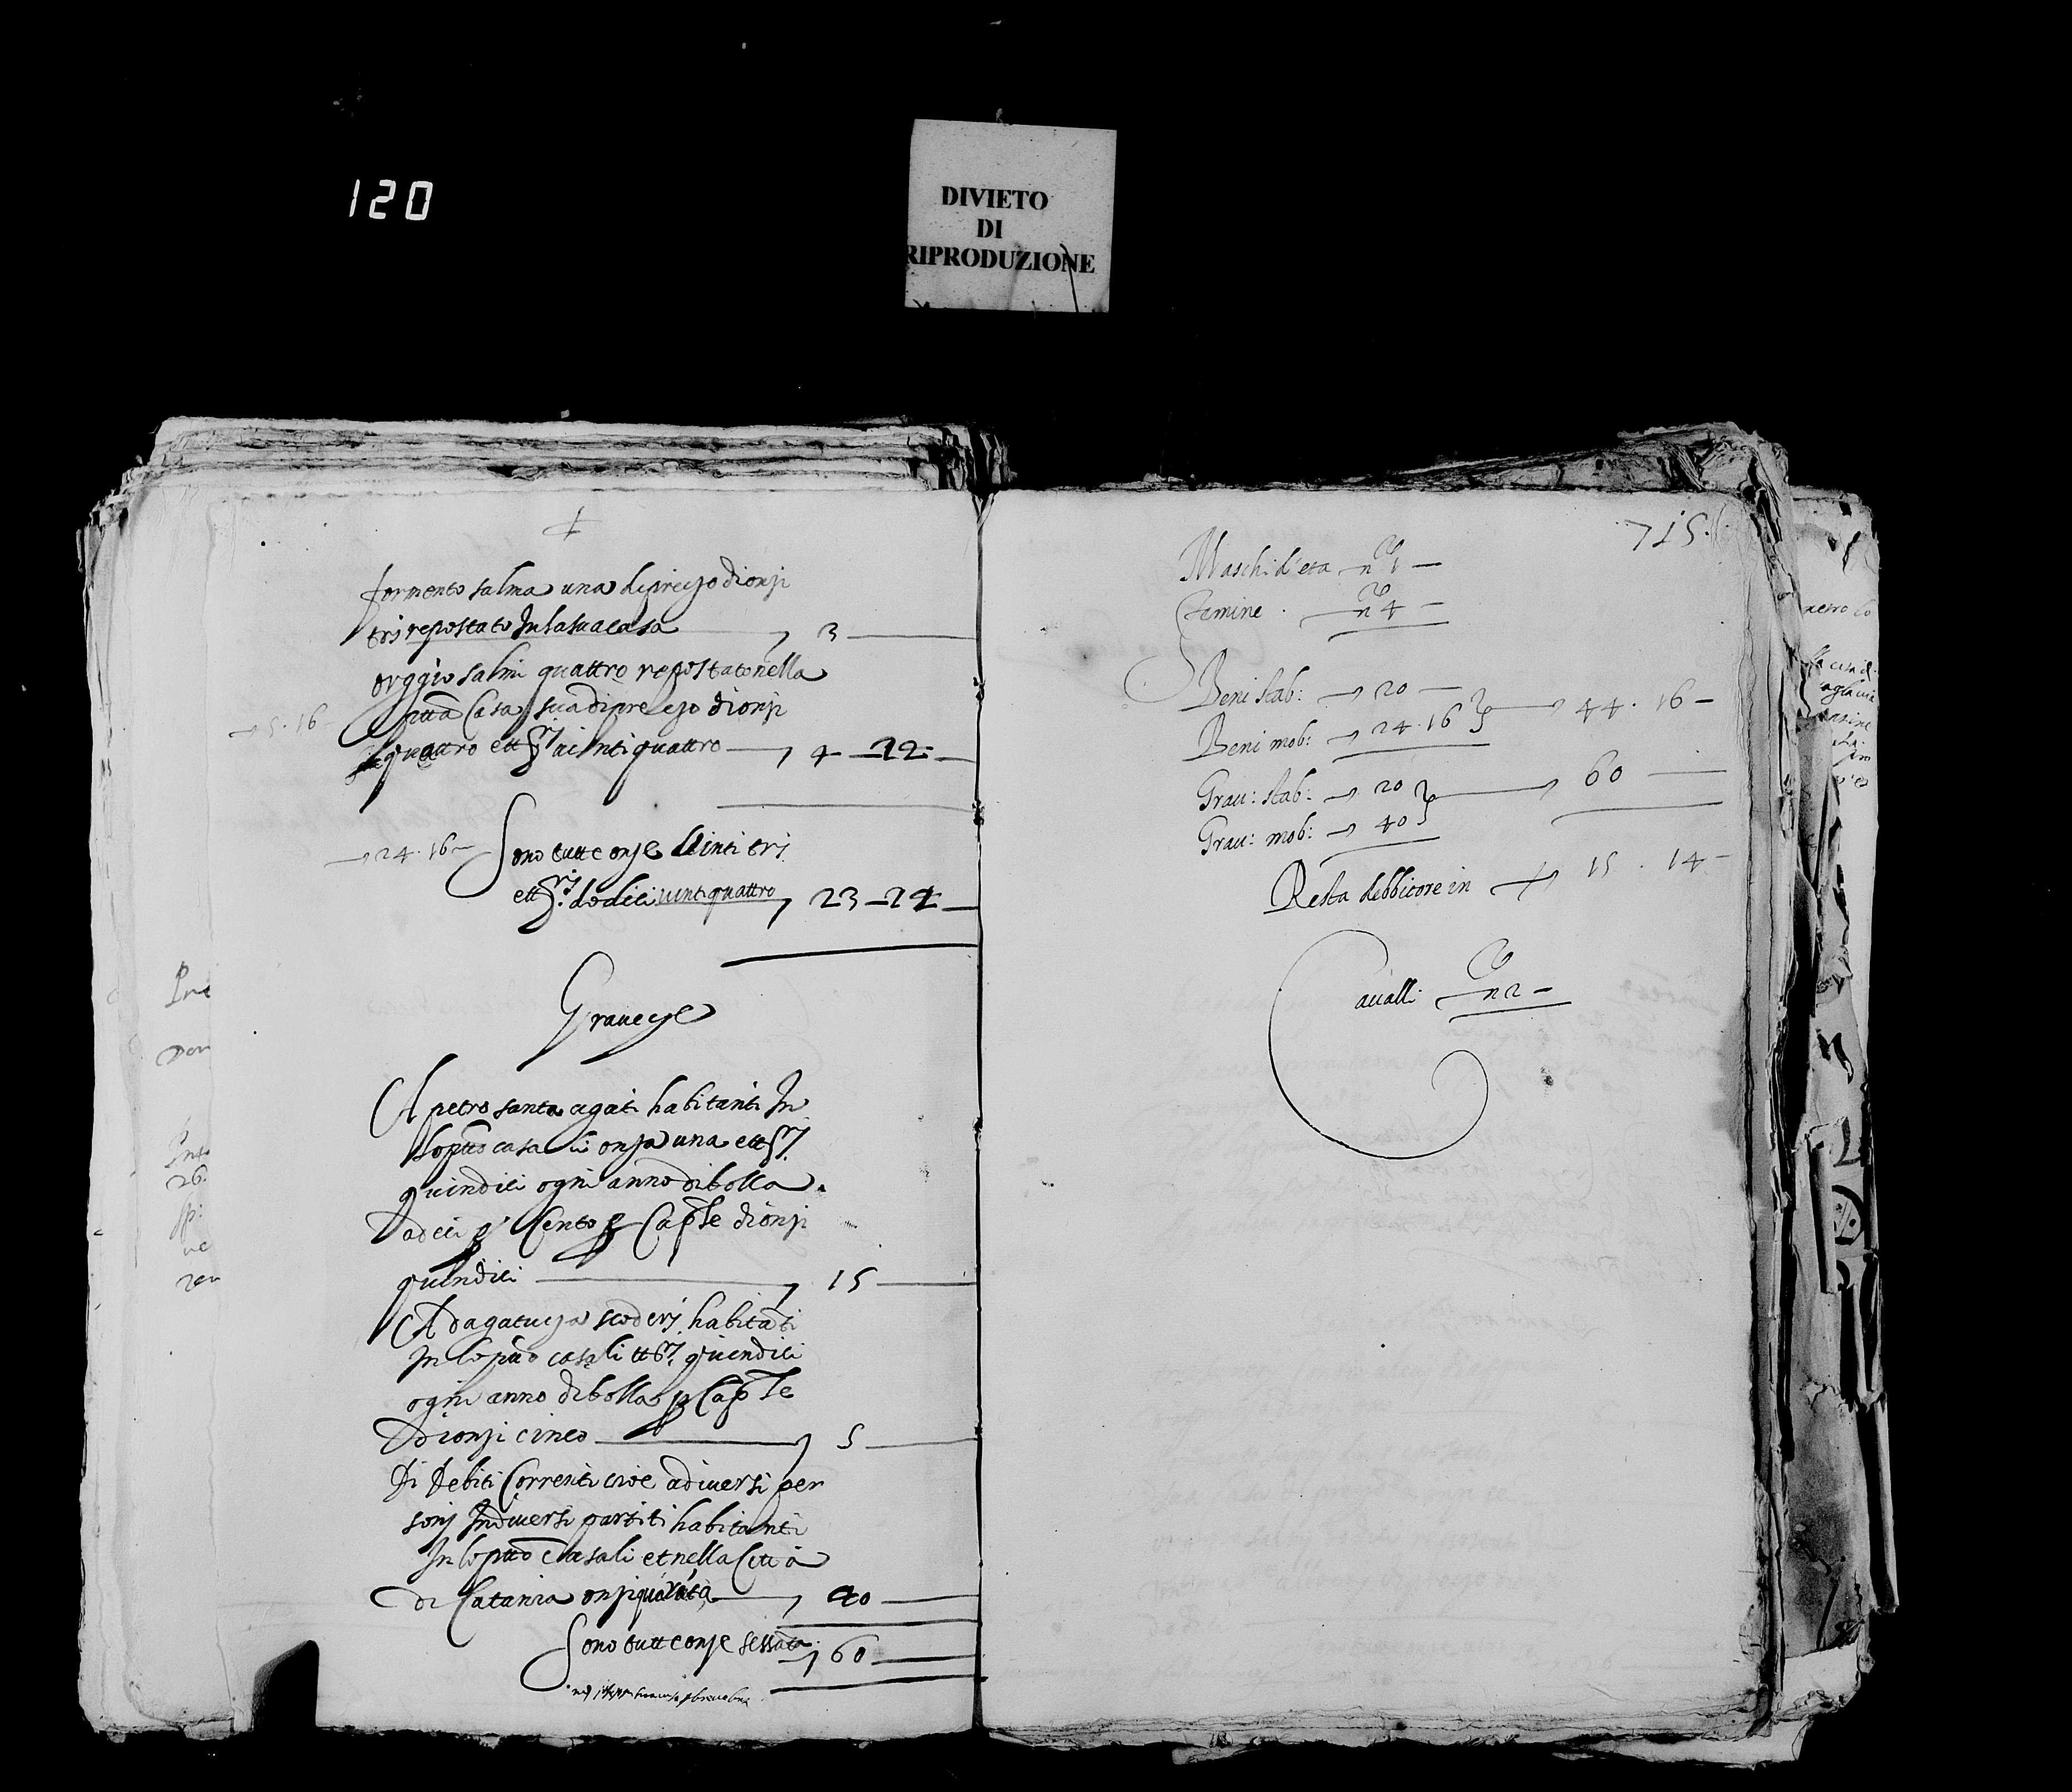 120
DIVIETO
DI
RIPRODUZIONE
formento salma una di prezzo di onzi
tri repostato In la sua casa 3
orggio salmi quattro repostato nella
ptta Casa sua di prezzo di onzi
5.16
quattro ett vinti quattro 4 - 22
24.16
Sono tutte onze vinti tri
ett dodici vinti quattro 23 - 24
Graveze
A petro santo agati habitanti In
lo ptto casali onza una ett
quindici ogni anno di bolla
a deci p Cento p Cap.le di onzi
quindici 15
Ad agatuza scoderi habitati
In lo ptto casali tt quindici
ogni anno di bolla p Cap.le
di onzi cinco 5
Di debiti Correnti cioe a diversi per
soni In diversi partiti habitanti
In lo ptto Casali et nella Citta
di Catania onzi quarata 40
Sono tutte onze sessata 60
715
Maschi d'eta n 1
Femine n 4
Beni stab: 20
Beni mob: 24.16 44.16
Grav: stab: 20 60
Grav: mob: 40
Resta debbitore in 15.14
Cavalli n 2